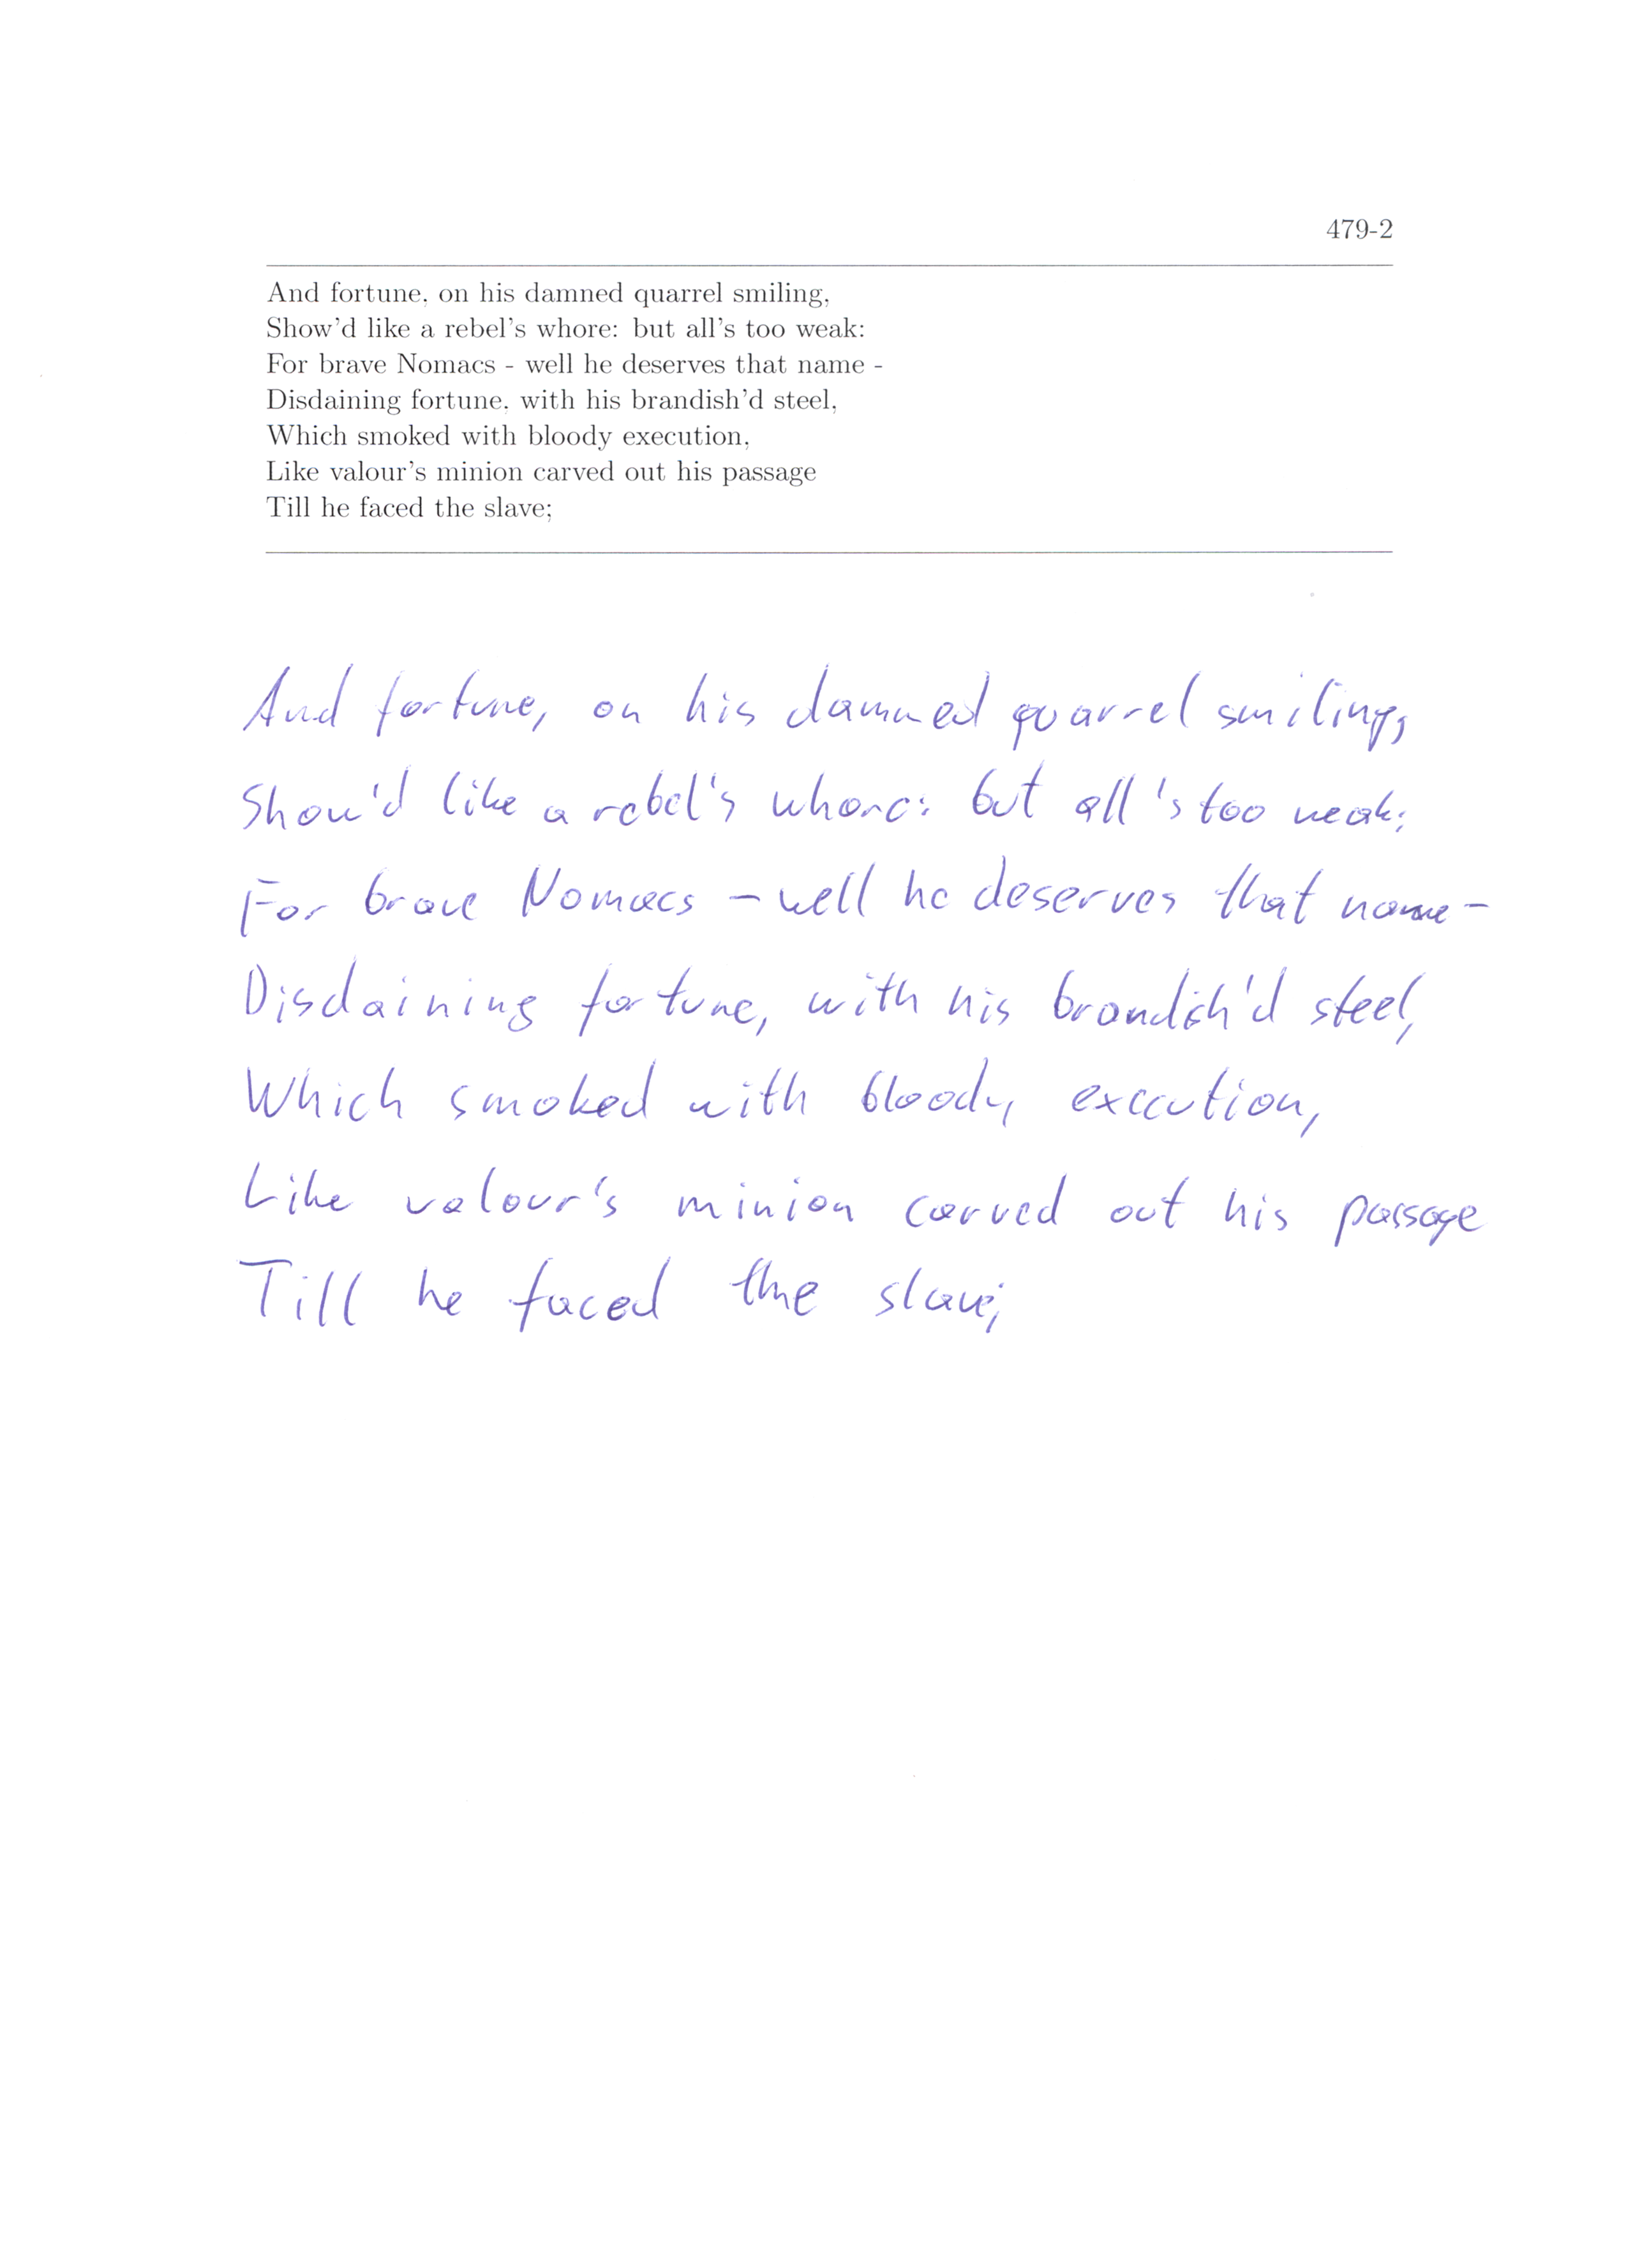 479-2
And fortune, on his damned quarrel smiling,
Show'd like a rebel's whore: but all's too weak:
For brave Nomacs - well he deserves that name -
Disdaining fortune, with his brandish'd steel,
Which smoked with bloody execution,
Like valour's minion carved out his passage
Till he faced the slave;
And fortune, on his damned quarrel smiling,
Show'd like a rebel's whore: but all's too weak:
For brave Nomacs - well he deserves that name -
Disdaining fortune, with his brandish'd steel,
Which smoked with bloody execution,
Like valour's minion carved out his passage
Till he faced the slave;